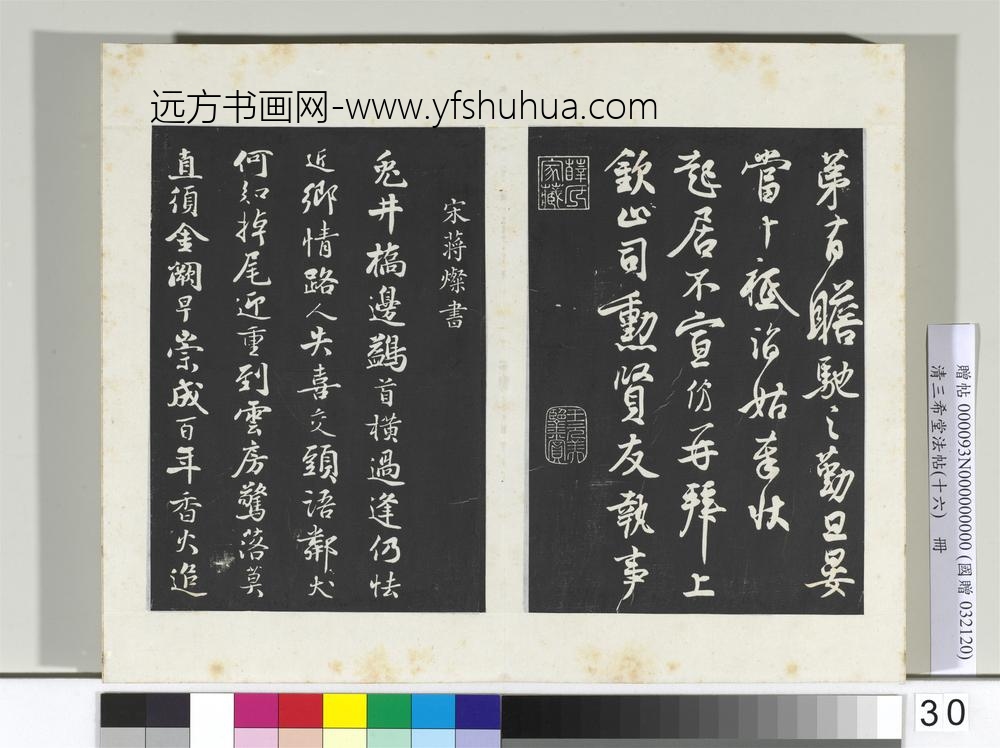 远方书画网-www.yfshuhua.com
第有瞻馳之勤日晏
當十祗詣姑奉狀
起居不宣份再拜上
欽止司勳賢友執事
薛氏家藏
宋蔣燦書
兔井橋邊鷁首橫過逢仍怯
近鄉情路人失喜交頭語鄰犬
何知掉尾迎重到雲房驚落莫
直須金闕早崇成百年香火追
贈帖 000093N000000000 (國贈 032120)
清三希堂法帖(十六) 冊
30